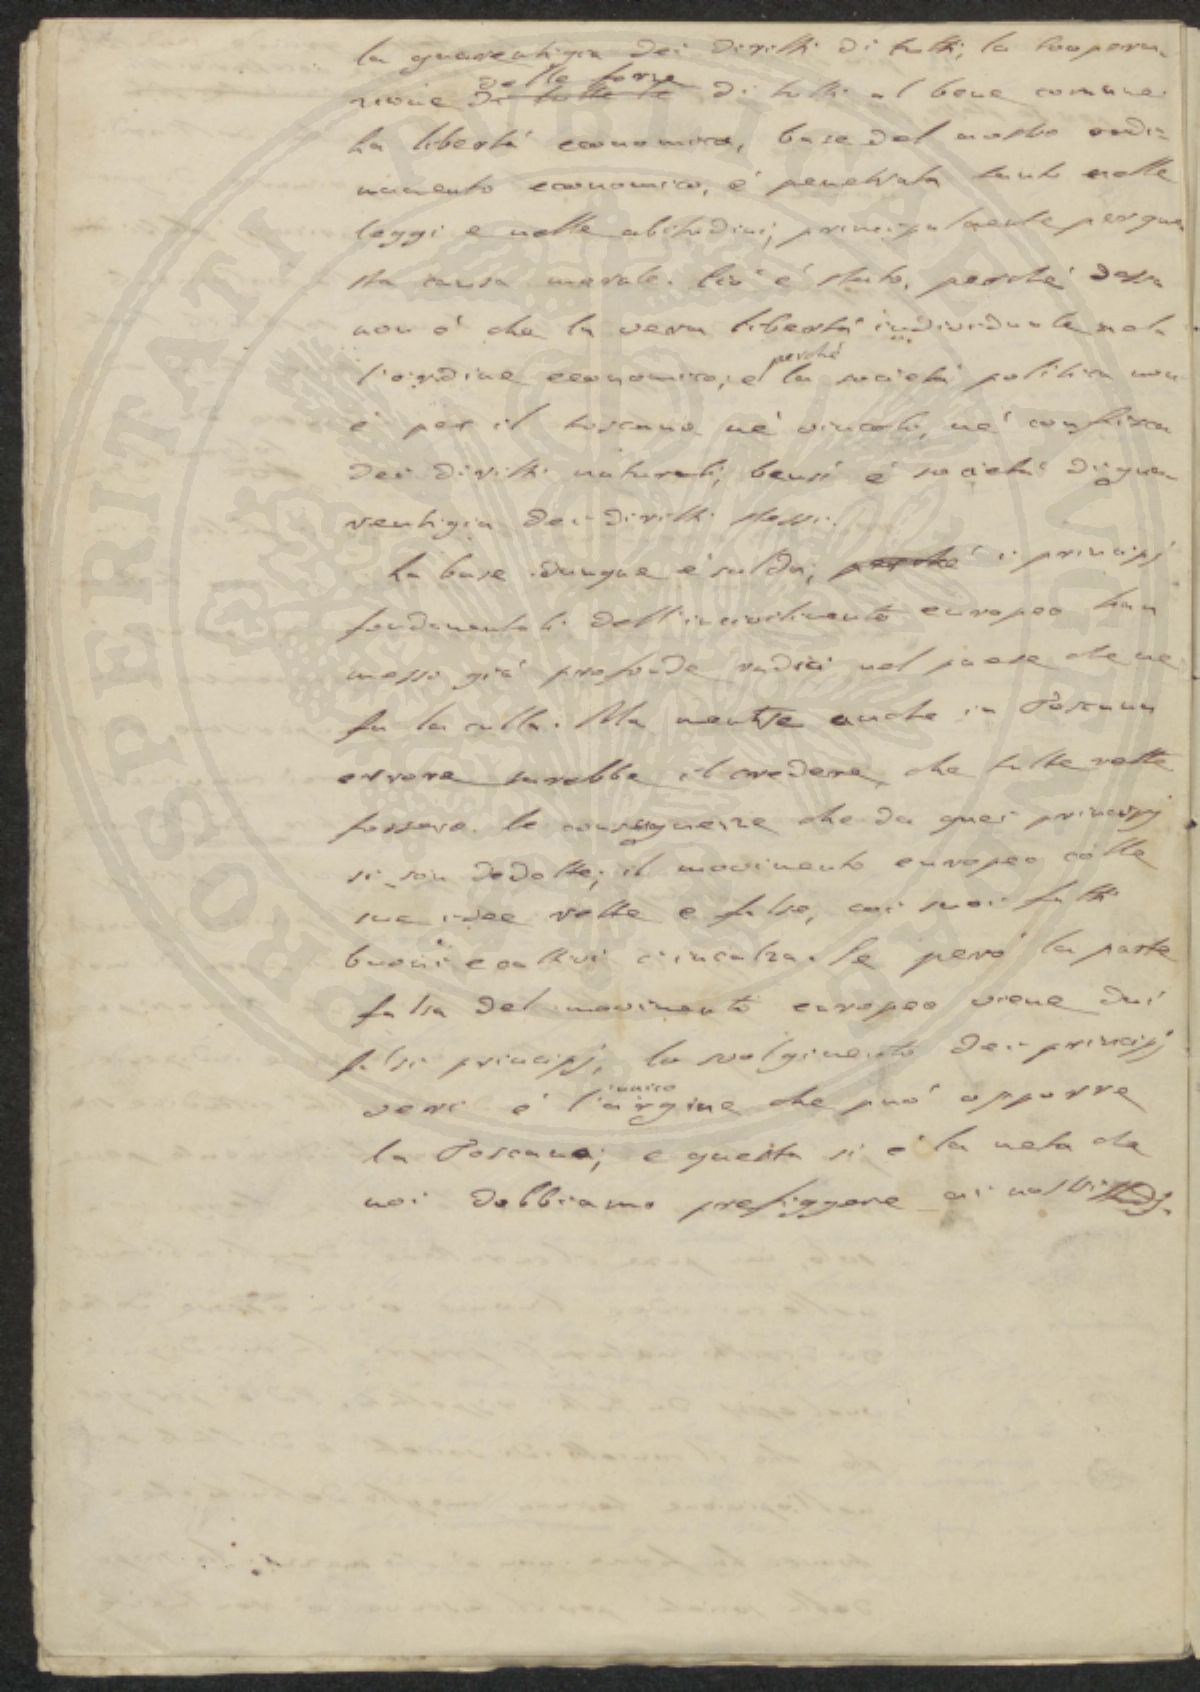 la guarentigia dei diritti di tutti, la coopera-
zione delle forze di tutte le di tutti al bene comune.
La libertà economica, base del nostro ordi-
namento economico, è penetrata tanto nelle
leggi e nelle abitudini, principalmente per que
sta causa morale. Ciò è stato, perché dessa
non è che la vera libertà individuale nel
l'ordine economico; e perché la società politica non
è per il toscano nè vincolo, nè confisca
dei diritti naturali, bensì è società di gua-
rentigia dei diritti stessi.
La base dunque è salda; perché i principj
fondamentali dell'incivilimento europeo han
messo già profonde radici nel paese che ne
fu la culla. Ma mentre anche in Toscana
errore sarebbe il credere, che tutte rette
fossero le conseguenze che da quei principj
si son dedotte; il movimento europeo colle
sue idee rette e false, coi suoi fatti
buoni e cattivi c'incalza. Se però la parte
falsa del movimento europeo viene dai
falsi principj, lo svolgimento dei principj
veri è l'unico argine che può opporre
la Toscana; e questa si è la meta che
noi dobbiamo prefiggere ai nostri
PROSPERITATI PUBLICAE AUGENDAE